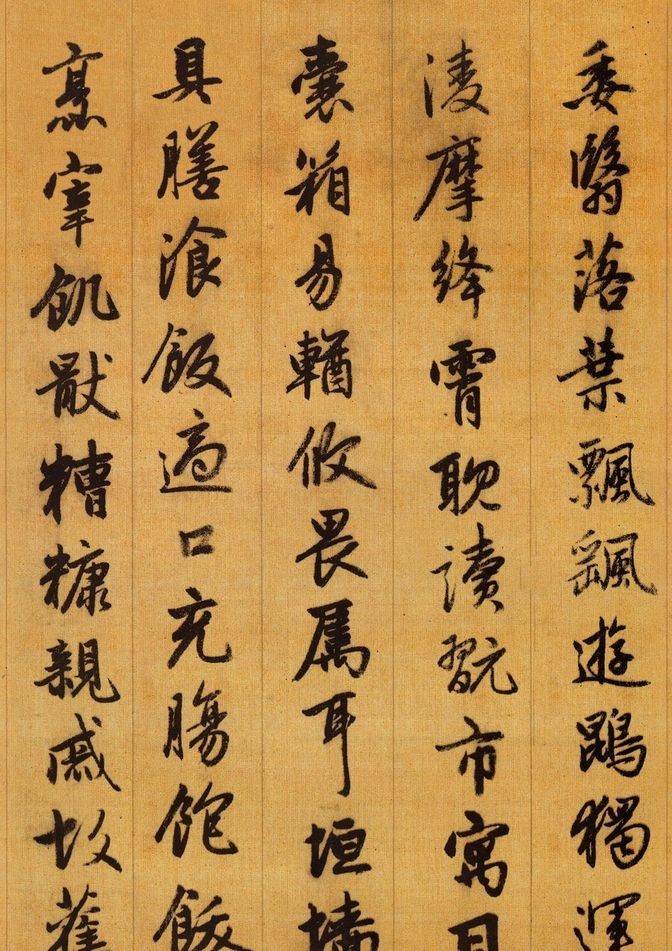 委翳落葉飄颻遊鵾獨運
淩摩絳霄耽讀翫市寓目
囊箱易輶攸畏属耳垣墻
具膳湌飯適口充膓飽飫
烹宰飢猒糟糠親戚故舊